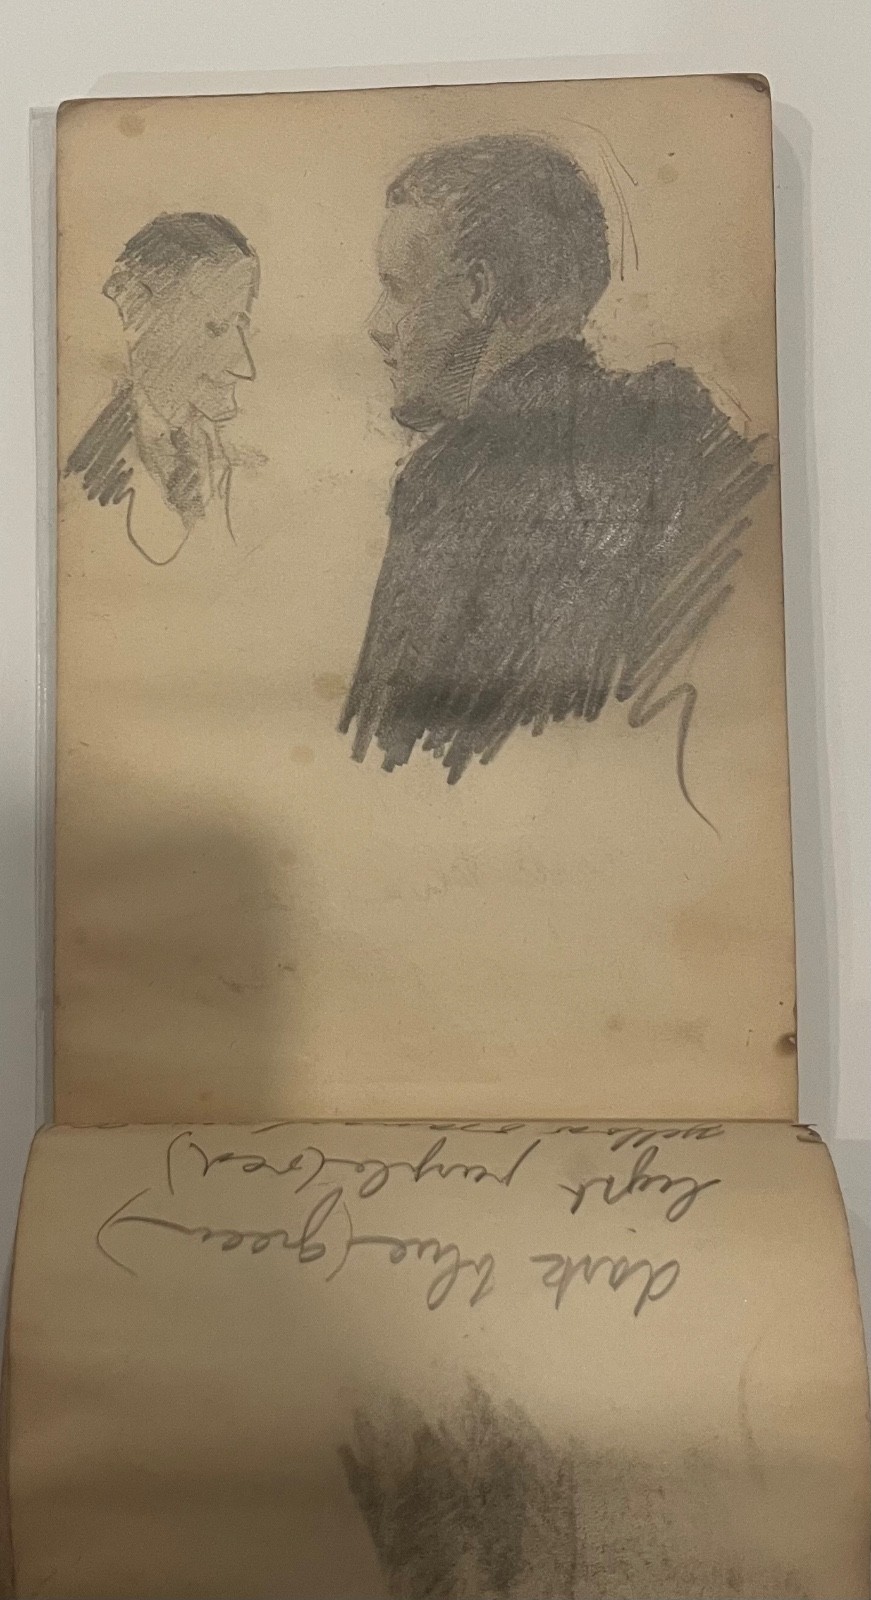 dark blue (green)
light purple (red)
yellow